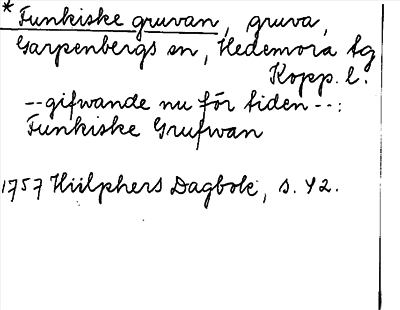 * Funkiske gruvan, gruva,
Garpenbergs sn, Hedemora tg
Kopp. l.
--gifwande nu för tiden--:
Funkiske Grufwan
1757 Hülphers Dagbok, s. 42.